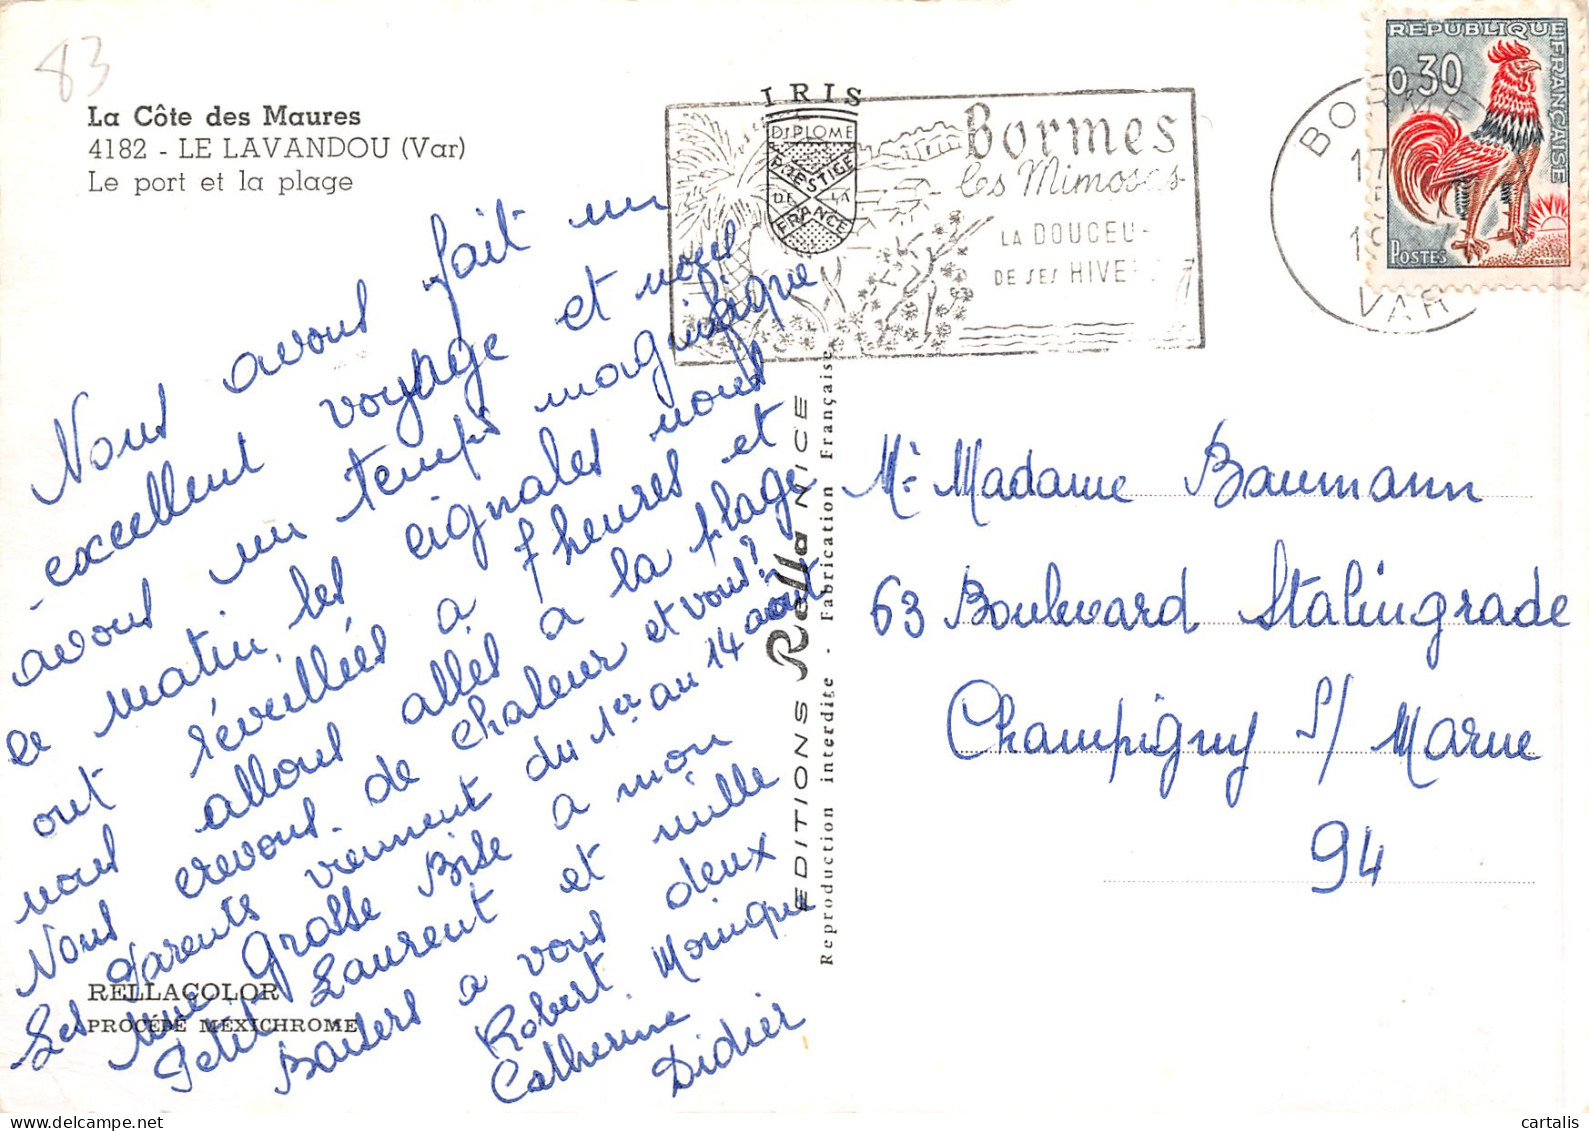 83
La Côte des Maures
4182 - LE LAVANDOU (Var)
Le port et la plage
Nous avons fait un
excellent voyage et nous
avons un temps magnifique
ce matin les cignales nous
ont réveillées a 7 heures et
nous allons allés a la plage
Nous crevons de chaleur et vous?
Les Parents viennent du 1er au 14 août
une Grosse Bise a mon
Petit Laurent et mille
Baisers a vous deux
Robert Monique
Catherine
Didier
RELLACOLOR
PROCÉDÉ MEXICHROME
IRIS
DIPLOME
PRESTIGE
DE LA
FRANCE
Bormes
les Mimosas
LA DOUCEU
DE SES HIVE
EDITIONS Rella NICE
Reproduction interdite - Fabrication Française
BORME
17
VAR
REPUBLIQUE FRANÇAISE
0,30
POSTES
DECARIS
Mr Madame Baumann
63 Boulevard Stalingrade
Champigny s/ Marne
94
cartalis